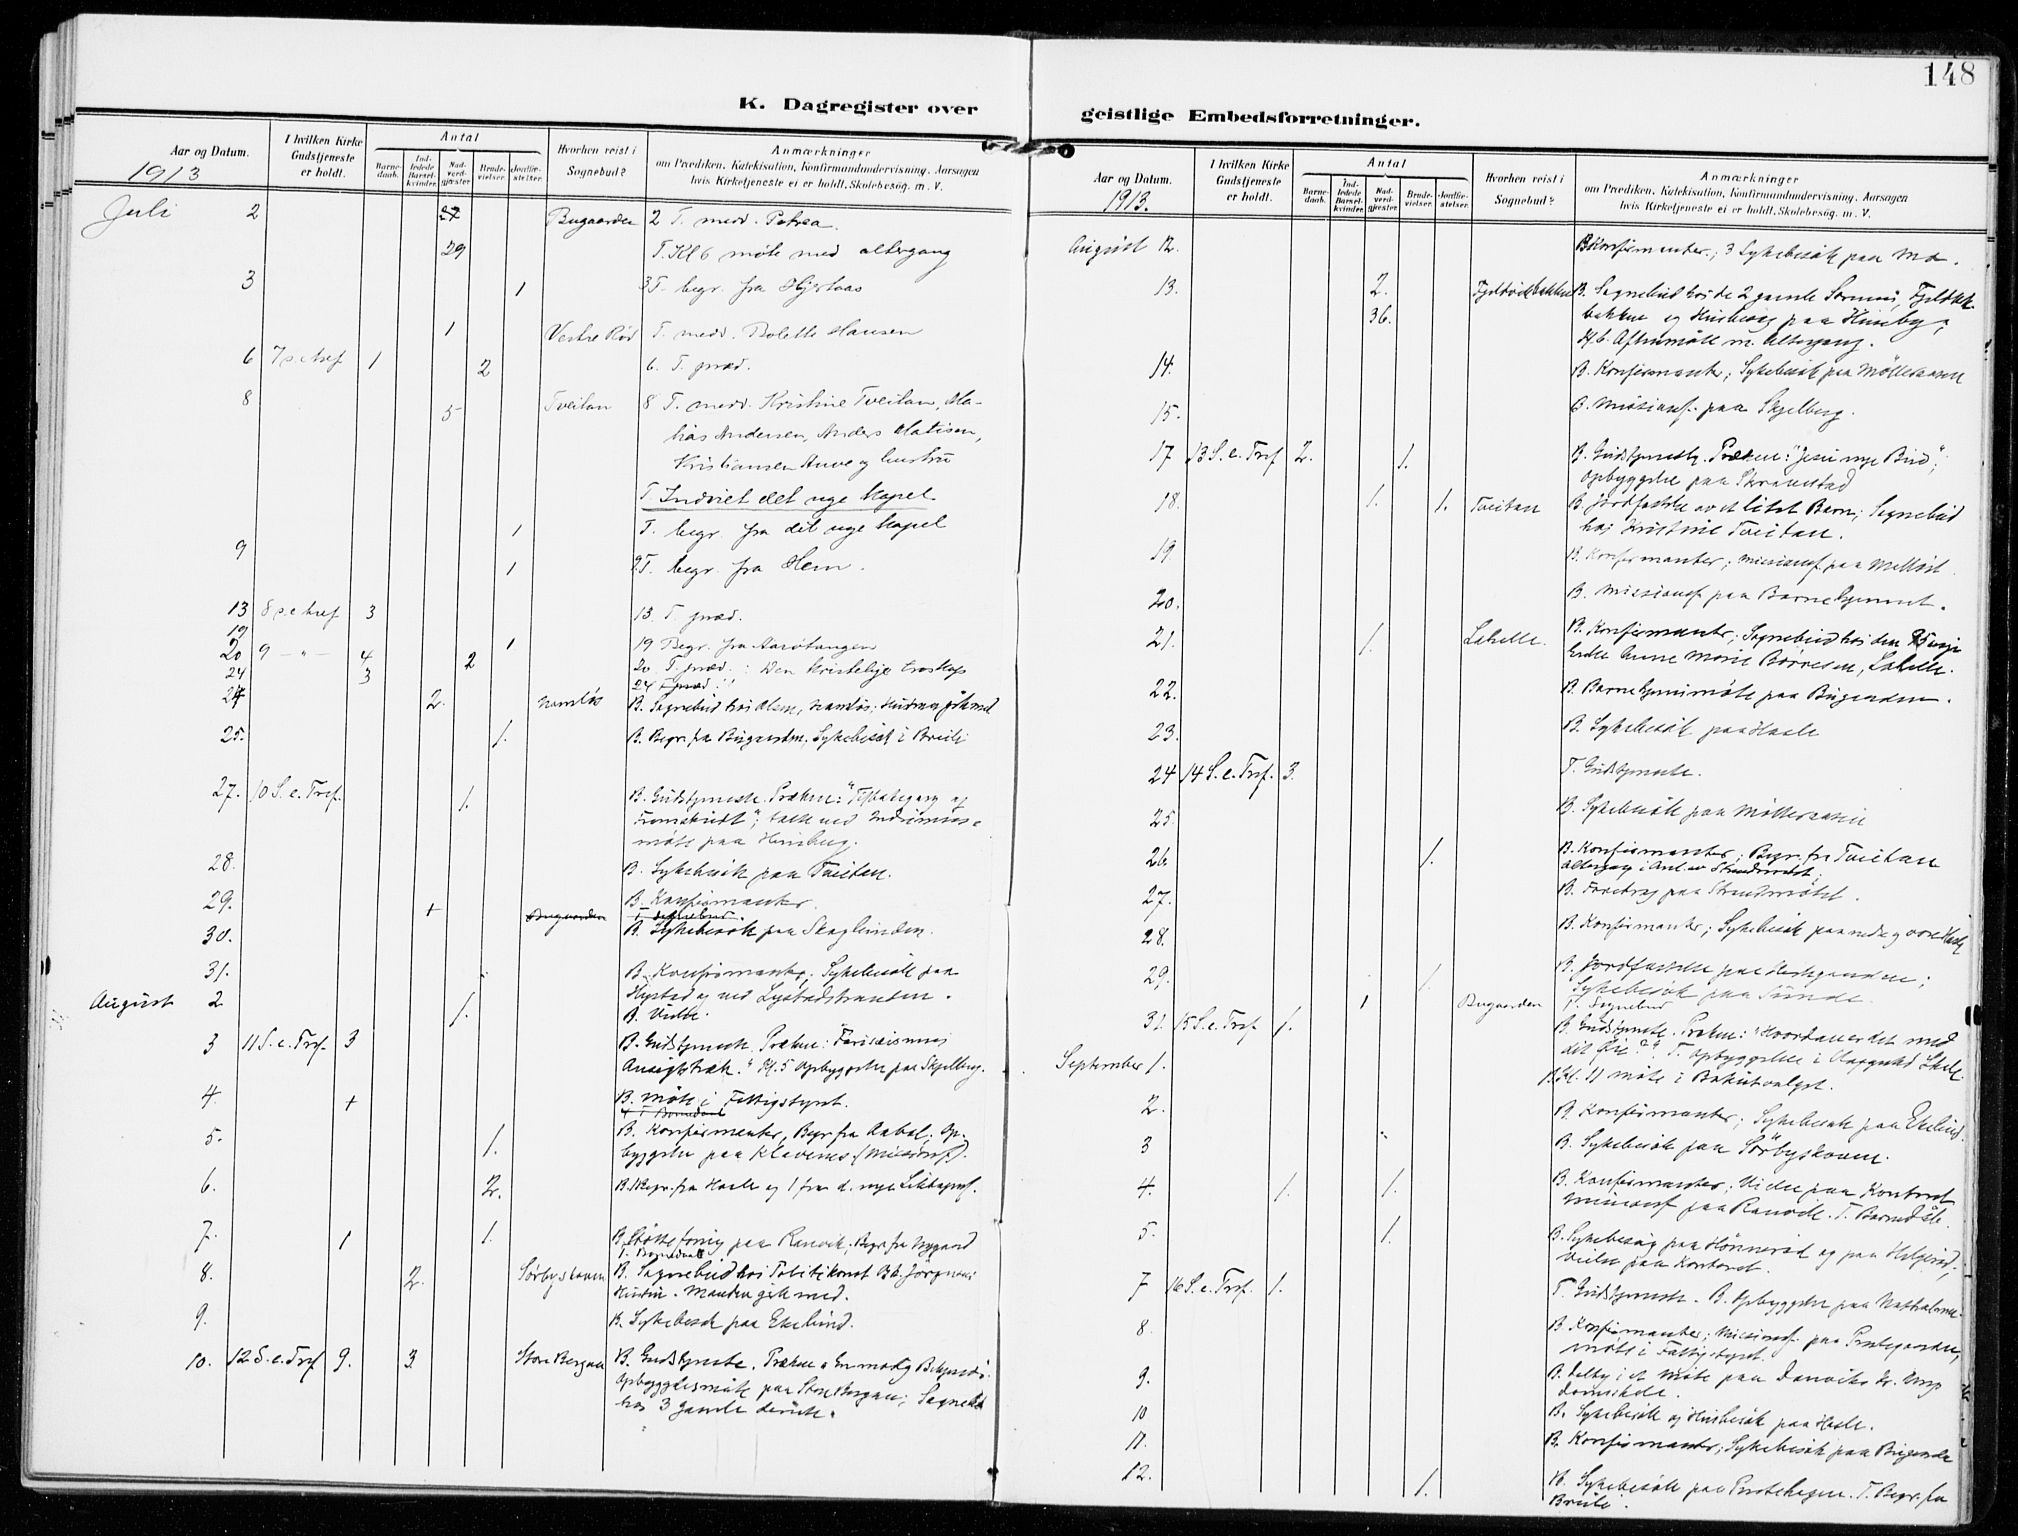 148
K. Dagregister over
Aar og Datum.
1913
I hvilken Kirke
Gudstjeneste
er holdt.
Antal
Barne-
daab.
Ind-
ledede
Barsel-
kvinder.
Nad-
verd-
gjæster.
Brude-
vielser.
Jordfæ-
stelser.
Hvorhen reist i
Sognebud?
Anmærkninger
om Prædiken, Katekisation, Konfirmandundervisning, Aarsagen
hvis Kirketjeneste ei er holdt, Skolebesøg. m. V.
Juli 2 Bugaarden 2 T. medd. Petrea
29 T. Kl 6 møte med altergang
3 1 3 T. begr. fra Hjertaas
1 Vestre Rød T. medd. Bolette Hansen
6 7 s e tref 1 2 6. T. præd.
8 5 Tveitan 8 T. medd. Kristine Tveitan, Ma-
hias Andersen, Anders Matisen,
Kristiansen Auve og hustru
T. Indviet det nye Kapel
1 T. begr. fra det nye Kapel
9 1 9 T. begr. fra Hem.
13 8 s. e tref 3 13 T. præd.
19 1 19 Begr. fra Aarøtangen
20 9 - " - 4 2 20 T. præd.: Den kristelige
24 3 24 T præd.
24 2. B. Sognebud hos Olsen,
25. 1. B. Begr. fra Bugaarden, Sykebesøk i Breili
27. 10 S. e. Tref. 1. B. Gudstjeneste. Præken: "Tilbakegang og
Fremskridt"; tale ved Indremissions-
møte paa Husberg.
28. B. Sykebesøk paa Tveiten.
29. + Bugaarden B. Konfirmanter.
1 sognebud.
30. B. Sykebesøk paa Skaglunden.
31. B. Konfirmanter. Sykebesøk paa
Hystad og ved Lystadstranden.
August 2 1. B. Vielse.
3 11 S. e. Tref. 3 B. Gudstjeneste. Præken: Farisæismens
Ansigtstræk." Kl. 5 Opbyggelse paa Skjelberg.
4. + B. Møte i Fattigstyret.
5. 1. B. Konfirmanter, Begr fra Aabol; Op-
byggelse paa Klavenes (Missionsf).
6. 2. B. 1 Begr. fra Hasle og 1 fra d. nye Likkapel.
7. 1 1. B. paa Ranvik; Begr. fra Nygaard
1. Barnedaab
8. 2. Sørbyskoven B. Sognebud hos Politikonst. Jørgensens
Hustru. Manden gik med.
9. B. Sykebesøk paa Ekelund.
10. 12 S. e. Tref 9. 3 Store Bergan B. Gudstjeneste. Præken: En modig Bekjendelse
Opbyggelsesmøte paa Store Bergan; Sognebud
hos 3 gamle derute.
geistlige Embedsforretninger.
Aar og Datum.
1913.
I hvilken Kirke
Gudstjeneste
er holdt.
Antal
Barne-
daab.
Ind-
ledede
Barsel-
kvinder.
Nad-
verd-
gjæster.
Brude-
vielser.
Jordfæ-
stelser.
Hvorhen reist i
Sognebud?
Anmærkninger
om Prædiken, Katekisation, Konfirmandundervisning, Aarsagen
hvis Kirketjeneste ei er holdt, Skolebesøg. m. V.
August 12. B. Konfirmanter; 3 Sykebesøk paa Mo.
13. 2. B. Sognebud hos de 2 gamle
36. bakken og Husbesøg paa Huseby;
Kl. 6 Aftenmøte m. Altergang.
14. B. Konfirmanter; Sykebesøk paa Mølleraasen
15. B. Missionsf. paa Skjelberg.
17 13 S. e. Tref 2. 1. B. Gudstjeneste. Præken: "Jesu nye Bud";
opbyggelse paa Skravestad
18. 1. 1. Tveitan B. Jordfæstelse av et litet Barn; Sognebud
hos Kristine Tveitan.
19 B. Konfirmanter; missionsf paa
20. B. Missionsf paa Barnehjemmet.
21. 1. Lahelle. B. Konfirmanter; Sognebud hos den
Enke Anne Marie Børresen, Lahelle.
22. B. Barnehjemsmøte paa Bugaarden.
23. B. Sykebesøk paa Hasle
24 14 S. e. Tref. 3. T. Gudstjeneste.
25. B. Sykebesøk paa Mølleraasen
26. 1. B. Konfirmanter; Begr. fra Tveitan
Altergang i Anl. av Strandmøtet
27. B. Foredrag paa Strandmøtet.
28. B. Konfirmanter; Sykebesøk paa nedre og øvre Hasle
29. 1. B. Jordfæstelse paa Hestgaarden;
Sykebesøk paa Sunde.
1 Bugaarden T. Sognebud
31. 15 S. e. Tref. 1. B. Gudstjeneste. Præken: "Hvordan er det med
dit Øre?" T. Opbyggelse i Skole.
September 1. B. Kl. 11 møte i
2. B. Konfirmanter; Sykebesøk paa Ekelund.
3 B. Sykebesøk paa Sørbyskoven.
4. 1. 1. B. Konfirmanter; Vielse paa Kontoret
missionsf paa Ranvik. T. Barnedåb.
5. 1. B. Sykebesøg paa Hønnerød og paa Helgerød;
Vielse paa Kontoret.
7 16 S. e. Tref. 1. T. Gudstjeneste. B. Opbyggelse paa
8. B. Konfirmanter; Missionsf. paa Prestegaarden;
møte i Fattigstyret.
9. B. Deltog i et møte paa Ranvik
10 B. Sykebesøk og Husbesøk paa Hasle.
11. B. Konfirmanter; Sykebesøk paa Bugaarden
12. 1. B. Sykebesøk paa Prestehagen. T. Begr. fra
Breili.